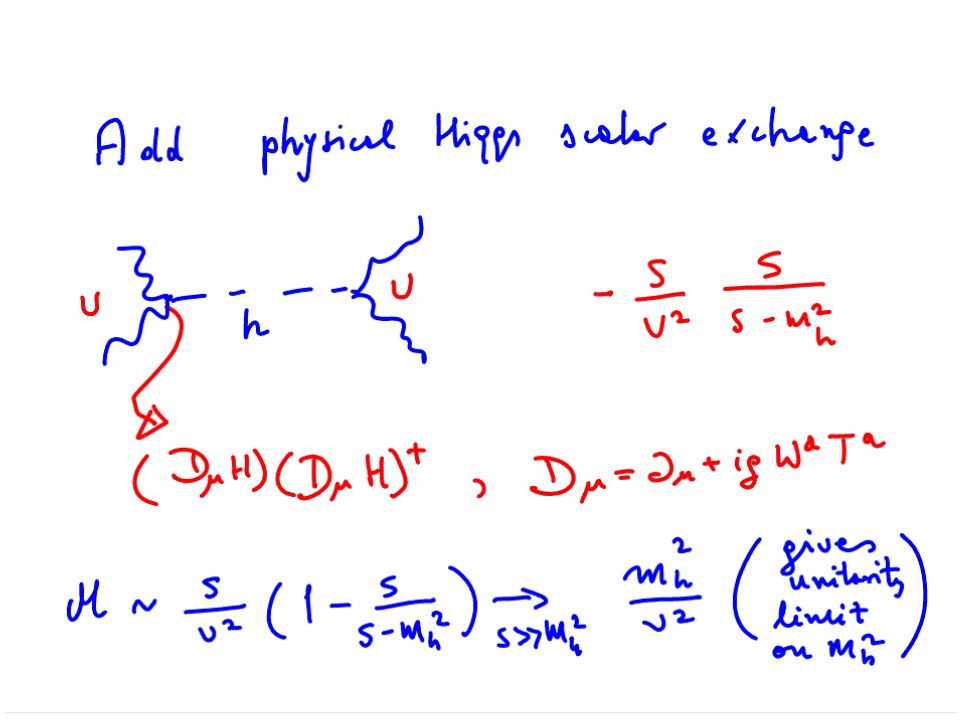 Add physical Higgs scalar exchange
v h v - s/v² s/(s - m_h²)
(D_μ H)(D_μ H)† , D_μ = ∂_μ + ig W^a T^a
M ~ s/v² (1 - s/(s - m_h²)) → s>>m_h² m_h²/v² (gives unitarity limit on m_h²)